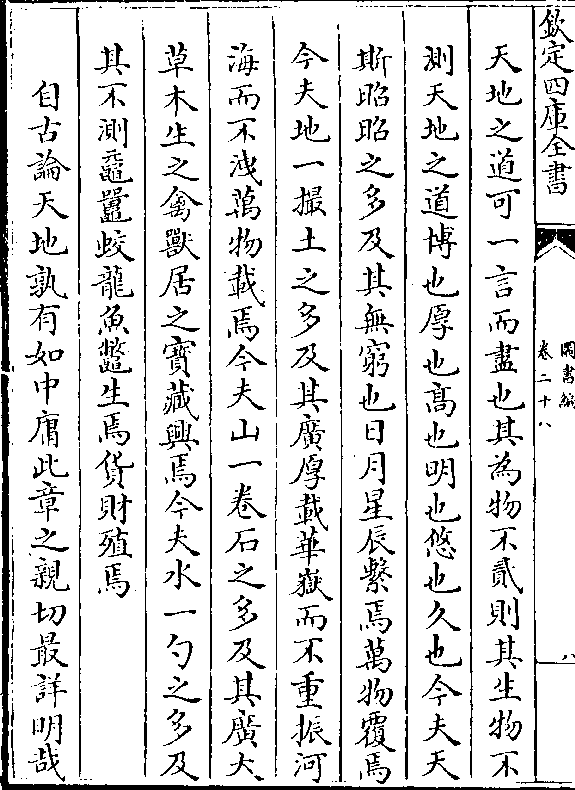 欽定四庫全書
圖書編
卷二十八
八
天地之道可一言而盡也其為物不貳則其生物不
測天地之道博也厚也高也明也悠也久也今夫天
斯昭昭之多及其無窮也日月星辰繫焉萬物覆焉
今夫地一撮土之多及其廣厚載華嶽而不重振河
海而不洩萬物載焉今夫山一卷石之多及其廣大
草木生之禽獸居之寶藏興焉今夫水一勺之多及
其不測黿鼉蛟龍魚鱉生焉貨財殖焉
自古論天地孰有如中庸此章之親切最詳明哉